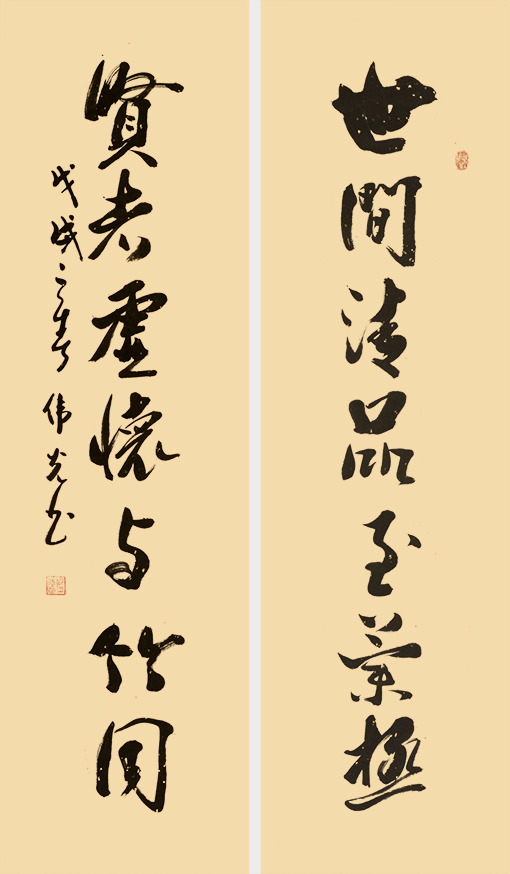 世間清品至蘭極
賢者虛懷与竹同
戊戌之春 伟光书